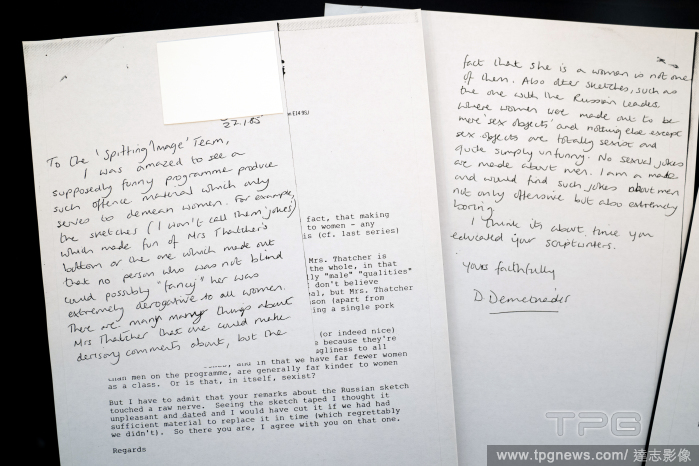 22.1.85
To the 'Spitting Image' Team,
I was amazed to see a
supposedly funny programme produce
such offence material which only
serves to demean women. For example,
the sketches (I won't call them jokes)
which made fun of Mrs Thatcher's
bottom or the one which made out
that no person who was not blind
could possibly "fancy" her was
extremely derogatory to all women.
There are many many things about
Mrs Thatcher that one could make
derisory comments about, but the
E14 9SU
fact, that making
to women - any
is (cf. last series)
Mrs. Thatcher is
the whole, in that
"male" "qualities"
I don't believe
but Mrs. Thatcher
(apart from
a single pork
(or indeed nice)
because they're
ugliness to all
and in that we have far fewer women
than men on the programme, are generally far kinder to women
as a class. Or is that, in itself, sexist?
But I have to admit that your remarks about the Russian sketch
touched a raw nerve. Seeing the sketch taped I thought it
unpleasant and dated and I would have cut it if we had had
sufficient material to replace it in time (which regrettably
we didn't). So there you are, I agree with you on that one.
Regards
fact that she is a woman is not one
of them. Also other sketches, such as
the one with the Russian leader
where women were made out to be
mere 'sex objects' and nothing else except
sex objects are totally sexist and
quite simply unfunny. No sexual jokes
are made about men. I am a male
and would find such jokes about men
not only offensive but also extremely
boring.
I think its about time you
educated your scriptwriters.
Yours faithfully
D. Demetriader
TPG
www.tpgnews.com/ 達志影像